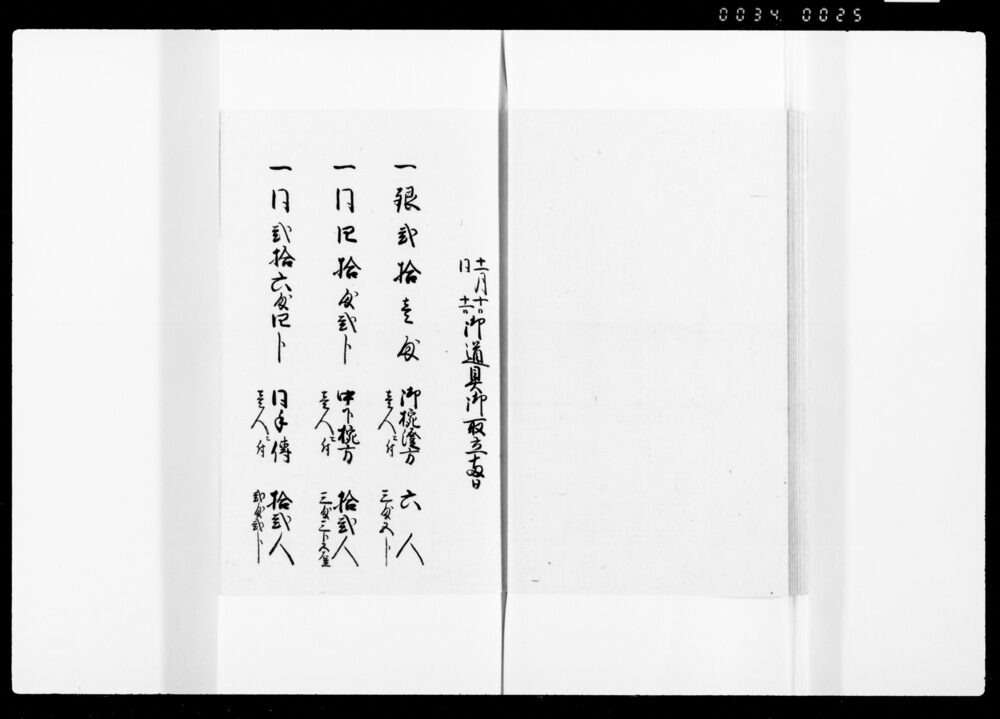 0034. 0025
十一月十日
同十一日
御道具御取立両日
一銀弐拾壱匁 御椀塗方 六人
壱人ニ付 三匁五分
一同四拾匁弐分 中下椀方 拾弐人
壱人ニ付 三匁三分五厘
一同弐拾六匁四分 同手傳 拾弐人
壱人ニ付 弐匁弐分